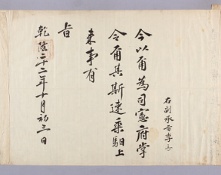 右副承旨李
今以甫爲司憲府掌
令甫其斯速乘馹上
來事有
旨
乾隆二十二年十月初三日